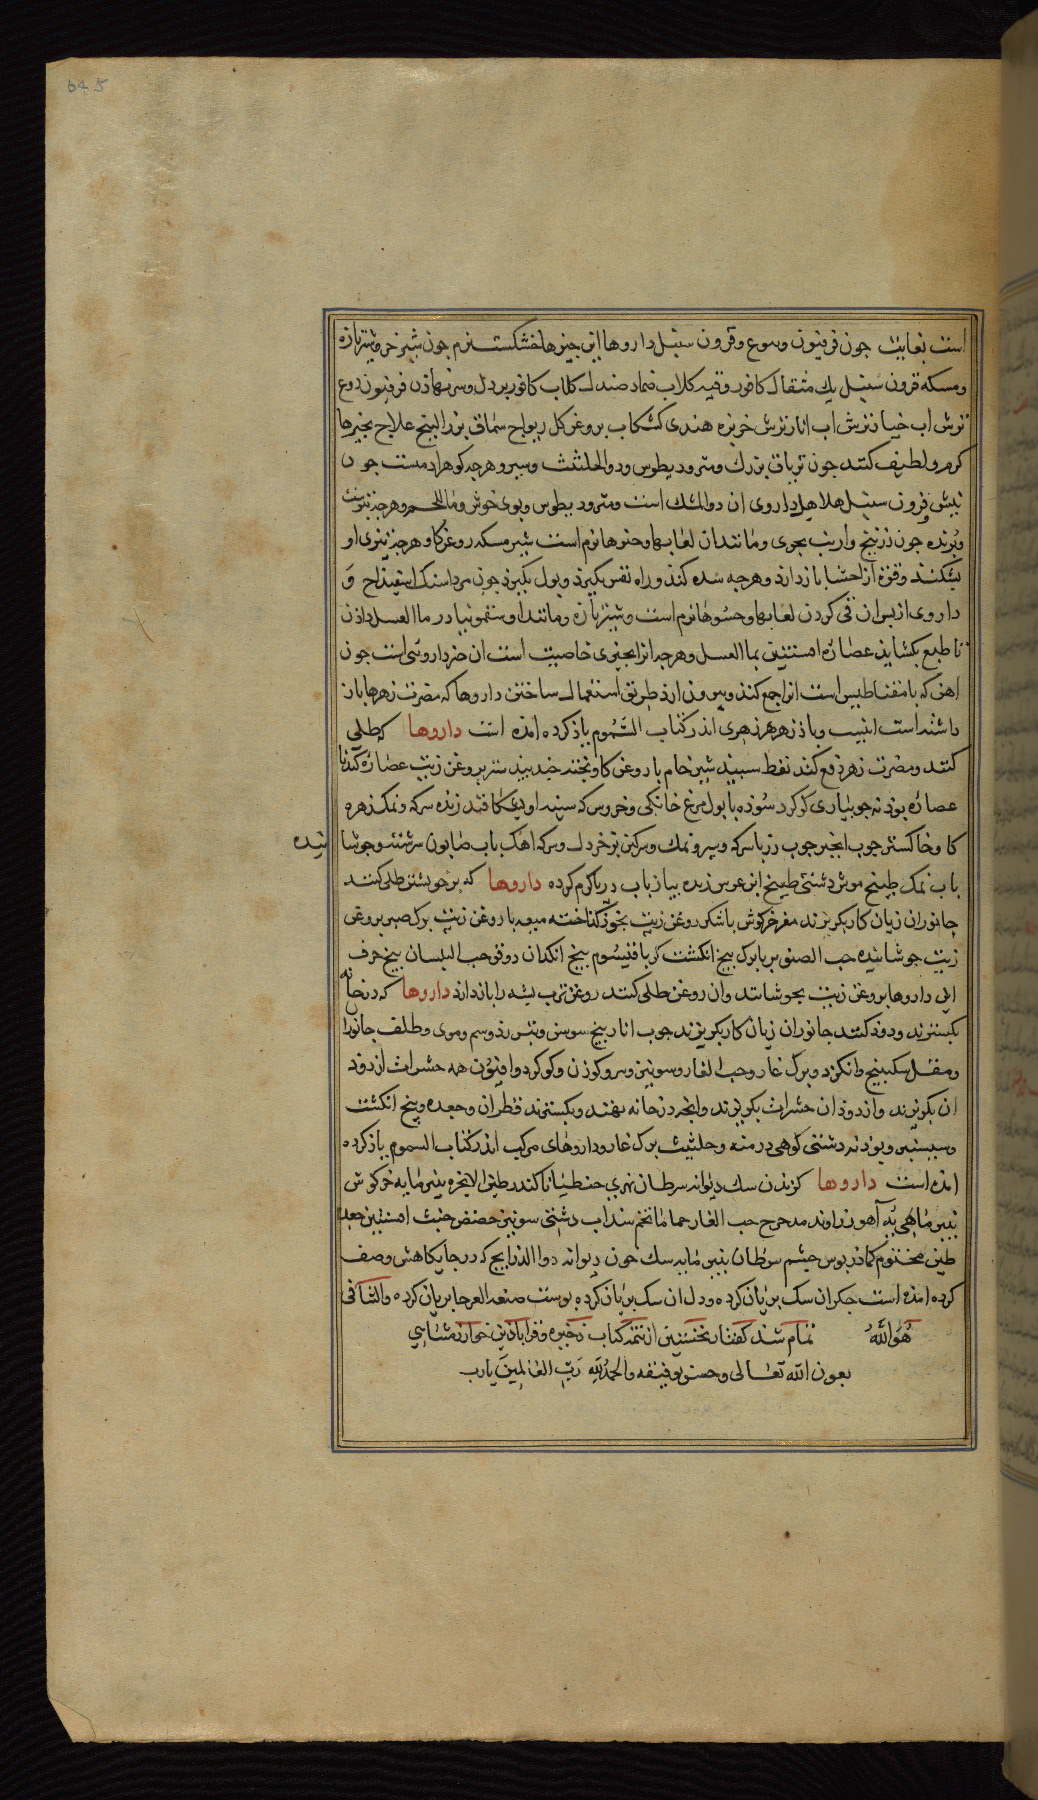 645
است بغایت جون فرفیون وسوع وقرون سنبل داروها این جیزها خشکست نرم جون شیر خر وشیر تازه
ومسکه قرون سنبل یك مثقال کافور وقیه کلاب ضماد صندل کلاب کافور بر دل وسر نهاذن فرفیون دوغ
ترش اب خیار ترش اب انار ترش خربزه هندی کشکاب بروغن کل ریواج سماق بزر البنج علاج بجیزها
کرم ولطیف کنند جون تریاق بزرك ومثرودیطوس ودوا الحلتیت وسیر وهرجه کوهر اد مست جون
بیش وقرون سنبل هلاهل داروی ان دوا المشك است ومثرودیطوس وبوی خوش وما اللحم وهرجه تیزست
وبرنده جون زرنیخ وارنب بحری ومانند ان لعابها وحسوها نرم است شیر مسکه روغن کاو وهرجه تیزی او
بشکند وقوة از احشا باز دارد وهرجه سده کند وراه نفس بکیرد وبول بکیرد جون مرداسنك اسفیذاج و
داروی از پس ان قی کردن لعابها وحسوها نرم است وشیر تازه ومانند او وسقمونیا در ما العسل داذن
تا طبع بکشاید عصاره افسنتین بما العسل وهرجه انرا بجیزی خاصیت است ان ضر دارو تنی است جون
اهن که با مغناطیس است انرا جمع کند وبیرون ارذ طریق استعمال ساختن داروها که مضرت زهرها باز
داشته است اینست وباذ زهر هر زهری اندر کتاب السموم یاذ کرده امذه است داروها که طلی
کنند ومضرت زهر دفع کند نفط سبید شیر خام با روغن کاو پخته جند بیدستر بروغن زیت عصاره کندنا
عصاره بوذنه جویباری کوکرد سوذه با بول مرغ خانکی وخروس که سینه او بشکافند زنده سرکه ونمک زهره
کاو خاکستر جوب انجیر جوب رز با سرکه وسیر ونمك وسرکین بز خردل وسرکه اهك باب صابون سرشته وجوشا
نیده
باب نمك طبیخ موش دشتی طبیخ ابن عرس زنده بیاز باب دریا کرم کرده داروها که بر خویشتن طلی کنند
جانوران زیان کار بکریزند مغز خرکوش با شکر روغن زیت بخوز کذاخته میعه با روغن زیت برك صبر بروغن
زیت جوشانیده حب الصنوبر یا برك بیخ انکشت کر یا قیسوم بیخ انکدان دوقو حب البلسان بیخ حرف
این داروها بروغن زیت بجوشانند وان روغن طلی کنند روغن ترب بشه را باز دارد داروها که در خانه
بکسترند ودود کنند جانوران زیان کار بکریزند جوب انار بیخ سوسن وشس رذ وسم وموی وظلف جانورا
ومقل سکبینج وانکزد وبرك غار وحب الغار وسونیز وسرو کوزن وکوکرد وافیون همه حشرات از دود
ان بکریزند واز دود ان حشرات بکریزند وانجه در خانه نهند وبکسترند قطران وجعده وپنج انکشت
وسیسنبر وبوذنه دشتی کوهی درمنه وحلتیت برك غار وداروهای مرکب اندر کتاب السموم یاذ کرده
امذه است داروها کزیدن سك دیوانه سرطان نهری جنطیانا کندر طین البحیره پنیرمایه خرکوش
بنیرمایه بچه آهو زراوند مدحرج حب الغار حماما تخم سنداب دشتی سونیز حضض حلتیت افسنتین جعده
طین مختوم کماذریوس جشم سرطان پنیرمایه سك خون دیوانه دوا الذراریج که در جایکاهش وصف
کرده امذه است جکر ان سك بریان کرده ودل ان سك بریان کرده بوست ضبعة العرجا بریان کرده والشافی
هو الله تمام شد کفتار نخستین از تتمه کتاب ذخیره وقراباذین خوارزمشاهی
بعون الله تعالی وحسن توفیقه والحمد لله رب العالمین یارب